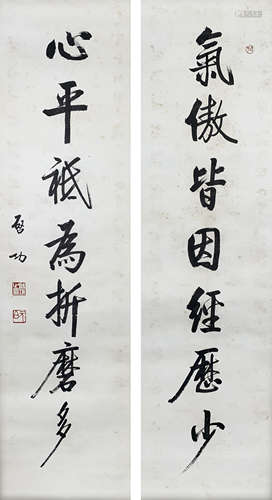 氣傲皆因經歷少
心平祗為折磨多
啟功